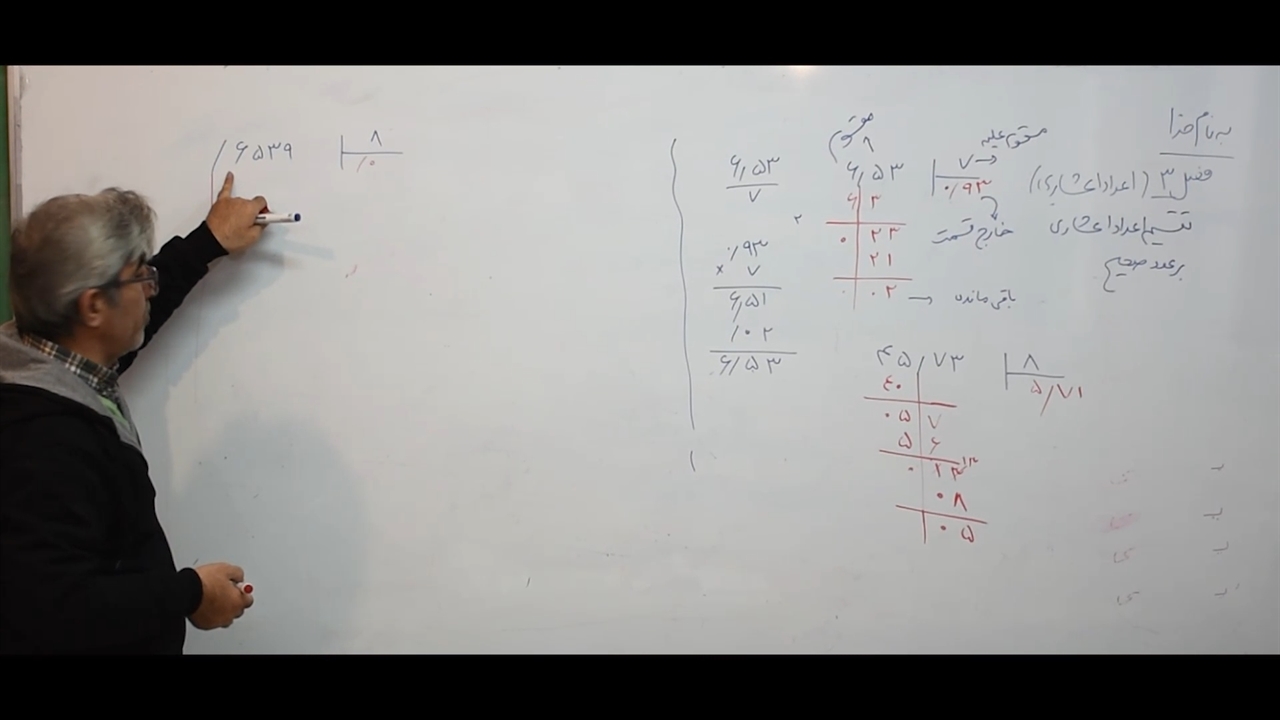 به نام خدا
فصل ۳ (اعداد اعشاری)
تقسیم اعداد اعشاری
بر عدد صحیح
مقسوم
مقسوم علیه
۶/۵۳ ۷
۰/۹۳
۶ ۳
۰ ۲۳
خارج قسمت
۲۱
۰ ۰۲
باقی مانده
۶/۵۳
۷
۰/۹۳
× ۷
۶/۵۱
/۰۲
۶/۵۳
۴۵/۷۳ ۸
۵/۷۱
۴۰
۰۵ ۷
۵ ۶
۰ ۱۳
۰۸
۰۵
/۶۵۳۹ ۸
/۰